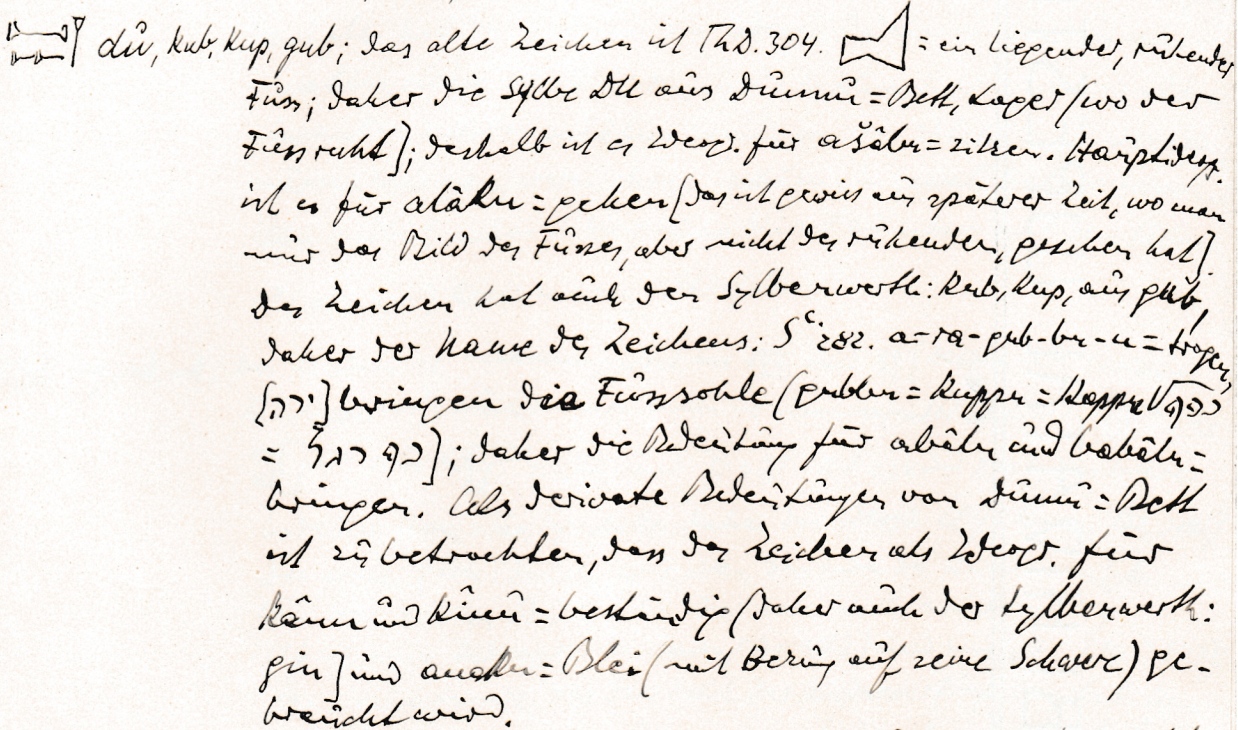 dû, kub, kup, gub; das alte Zeichen ist ThD. 304. = ein liegender, ruhender
Fuss; daher die Sylbe DU aus Dummu = Bett, Lager (wo der
Fuss ruht); deshalb ist es Ideogr. für ašâbu = sitzen. Hauptideogr.
ist es für alâku = gehen (das ist gewiss aus späterer Zeit, wo man
nur das Bild des Fusses, aber nicht des ruhenden, gesehen hat).
Das Zeichen hat auch den Sylbenwerth: kub, kup, aus gub,
daher der Name des Zeichens: Sᶜ 282. a-ra-gub-bu-u = tragen,
[ירה] bringen die Fusssohle (gubbu = kuppu = kappu √כפף
= כף רגל); daher die Bedeutung für abâlu und babâlu =
bringen. Als derivate Bedeutungen von Dummu = Bett
ist zu betrachten, dass das Zeichen als Ideogr. für
kânu und kînu = beständig (daher auch der Sylbenwerth:
gin) und anaku = Blei (mit Bezug auf seine Schwere) ge-
braucht wird.